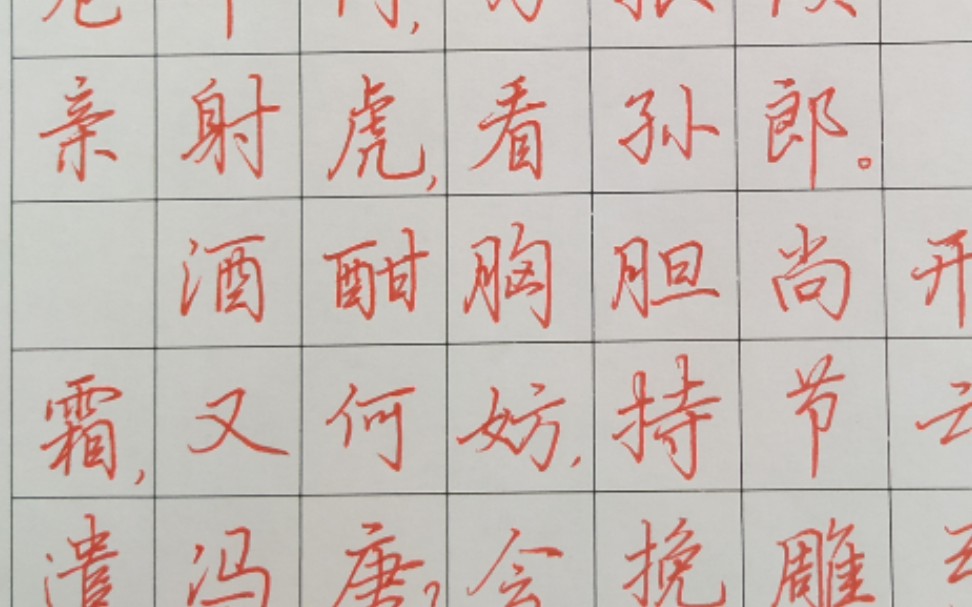 亲射虎,看孙郎。
酒酣胸胆尚开
霜,又何妨,持节云
遣冯唐?会挽雕